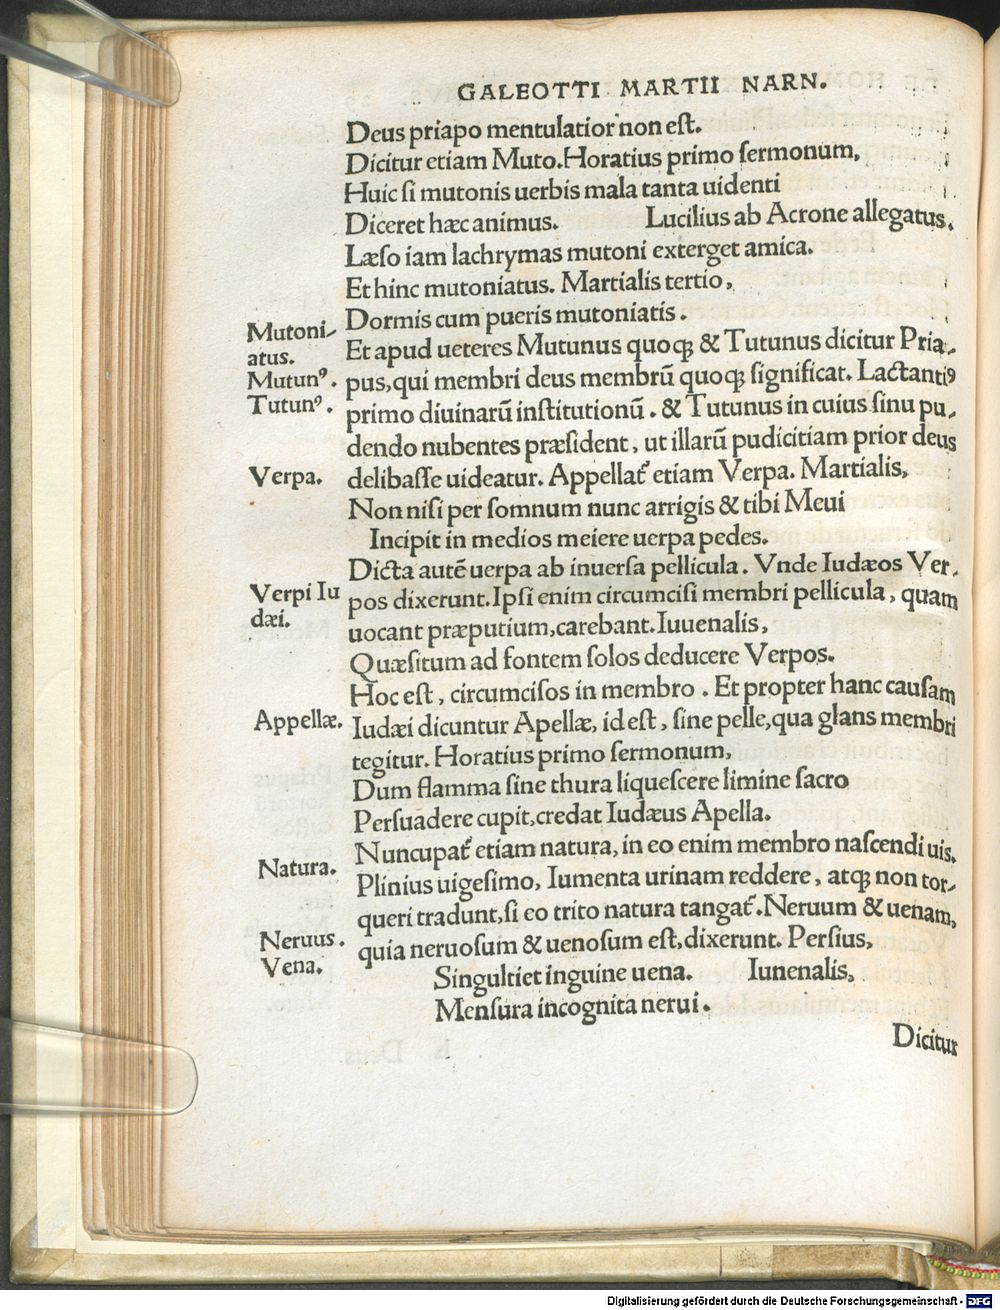 GALEOTTI MARTII NARN.
Deus priapo mentulatior non eſt.
Dicitur etiam Muto. Horatius primo ſermonum,
Huic ſi mutonis uerbis mala tanta uidenti
Diceret hæc animus. Lucilius ab Acrone allegatus.
Læſo iam lachrymas mutoni exterget amica.
Et hinc mutoniatus. Martialis tertio,
Mutoni-
atus.
Dormis cum pueris mutoniatis.
Et apud ueteres Mutunus quoqꝫ & Tutunus dicitur Pria-
Mutunꝰ.
pus, qui membri deus membrū quoqꝫ ſignificat. Lactantiꝰ
Tutunꝰ.
primo diuinarū inſtitutionū. & Tutunus in cuius ſinu pu-
dendo nubentes præſident, ut illarū pudicitiam prior deus
Verpa.
delibaſſe uideatur. Appellat᷑ etiam Verpa. Martialis,
Non niſi per ſomnum nunc arrigis & tibi Meui
Incipit in medios meiere uerpa pedes.
Dicta autē uerpa ab inuerſa pellicula. Vnde Iudæos Ver-
Verpi Iu
dæi.
pos dixerunt. Ipſi enim circumciſi membri pellicula, quam
uocant præputium, carebant. Iuuenalis,
Quæſitum ad fontem ſolos deducere Verpos.
Hoc eſt, circumciſos in membro. Et propter hanc cauſam
Appellæ.
Iudæi dicuntur Apellæ, id eſt, ſine pelle, qua glans membri
tegitur. Horatius primo ſermonum,
Dum flamma ſine thura liqueſcere limine ſacro
Perſuadere cupit, credat Iudæus Apella.
Nuncupat᷑ etiam natura, in eo enim membro naſcendi uis.
Natura.
Plinius uigeſimo, Iumenta urinam reddere, atqꝫ non tor-
queri tradunt, ſi eo trito natura tangat᷑. Neruum & uenam,
Neruus.
Vena.
quia neruoſum & uenoſum eſt, dixerunt. Perſius,
Singultiet inguine uena. Iunenalis,
Menſura incognita nerui.
Dicitur
Digitalisierung gefördert durch die Deutsche Forschungsgemeinschaft - DFG